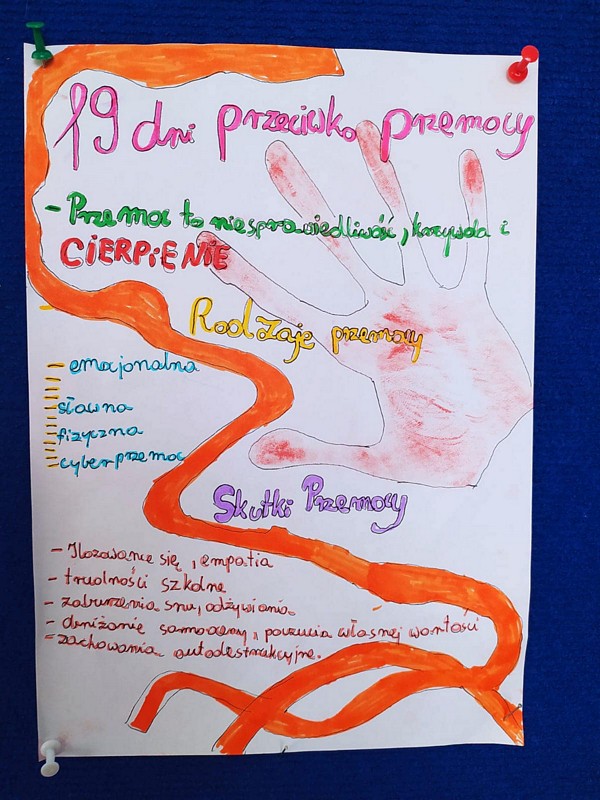 19 dni przeciwko przemocy
- Przemoc to niesprawiedliwość, krzywda i
CIERPIENIE
Rodzaje przemocy
- emocjonalna
słowna
fizyczna
cyberprzemoc
Skutki Przemocy
- Izolowanie się, empatia
- trudności szkolne
- zaburzenia snu, odżywiania
- obniżanie samooceny, poczucia własnej wartości
- zachowania autodestrukcyjne.